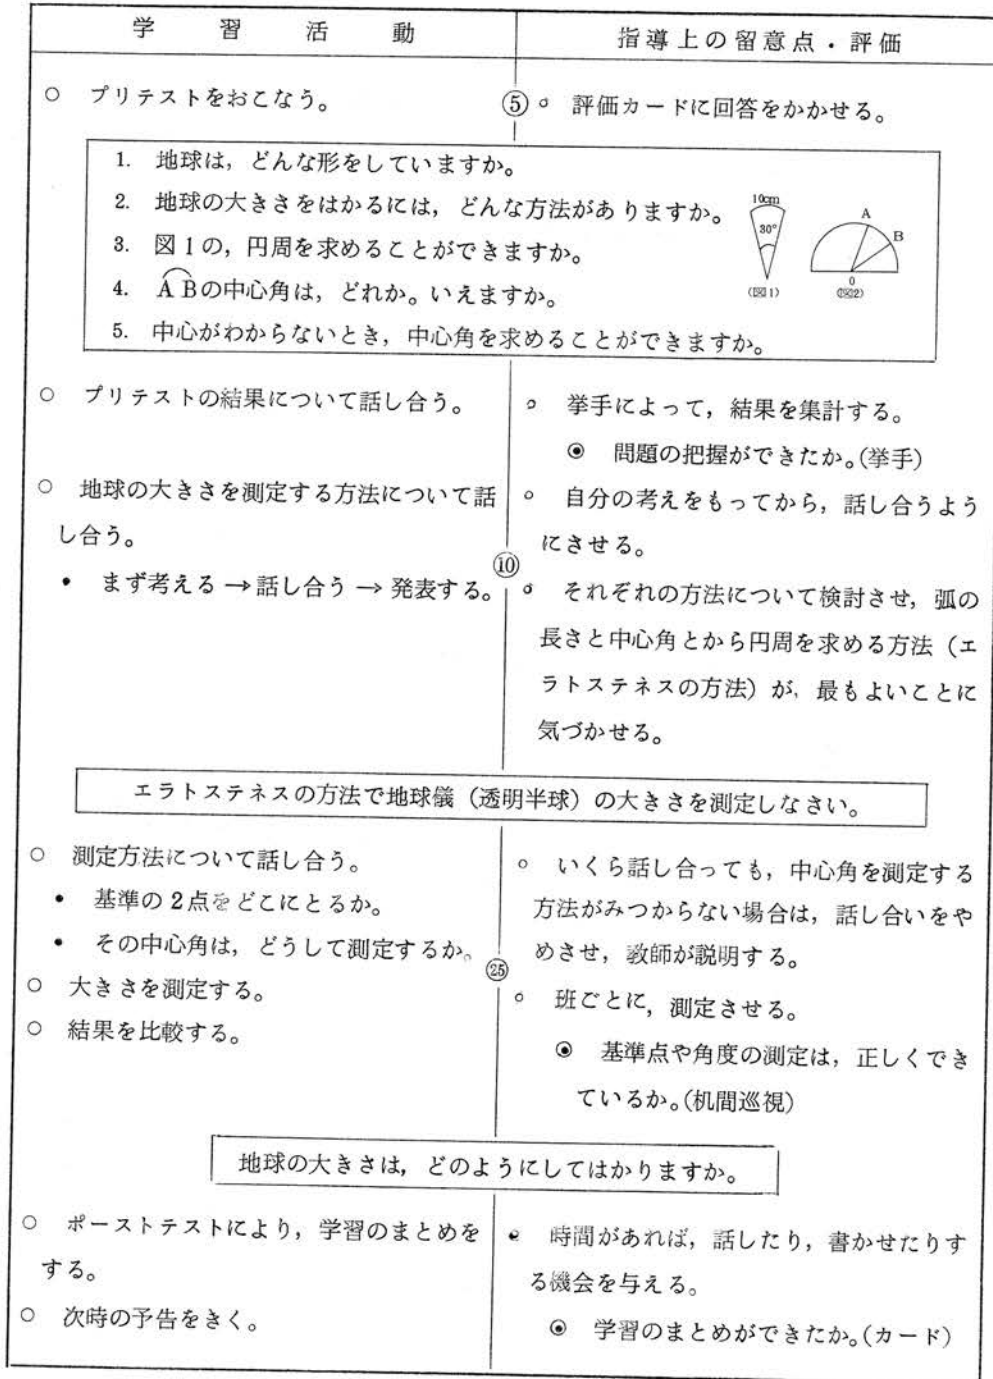 学習活動
指導上の留意点・評価
○ プリテストをおこなう。
⑤
○ 評価カードに回答をかかせる。
1. 地球は，どんな形をしていますか。
2. 地球の大きさをはかるには，どんな方法がありますか。
3. 図1の，円周を求めることができますか。
4. A͡Bの中心角は，どれか。いえますか。
5. 中心がわからないとき，中心角を求めることができますか。
10cm
30°
(図1)
A
B
0
(図2)
○ プリテストの結果について話し合う。
○ 地球の大きさを測定する方法について話
し合う。
• まず考える → 話し合う → 発表する。
⑩
○ 挙手によって，結果を集計する。
◉ 問題の把握ができたか。(挙手)
○ 自分の考えをもってから，話し合うよう
にさせる。
○ それぞれの方法について検討させ，弧の
長さと中心角とから円周を求める方法（エ
ラトステネスの方法）が，最もよいことに
気づかせる。
エラトステネスの方法で地球儀（透明半球）の大きさを測定しなさい。
○ 測定方法について話し合う。
• 基準の2点をどこにとるか。
• その中心角は，どうして測定するか。
○ 大きさを測定する。
○ 結果を比較する。
㉕
○ いくら話し合っても，中心角を測定する
方法がみつからない場合は，話し合いをや
めさせ，教師が説明する。
○ 班ごとに，測定させる。
◉ 基準点や角度の測定は，正しくでき
ているか。(机間巡視)
地球の大きさは，どのようにしてはかりますか。
○ ポーストテストにより，学習のまとめを
する。
○ 次時の予告をきく。
○ 時間があれば，話したり，書かせたりす
る機会を与える。
◉ 学習のまとめができたか。(カード)